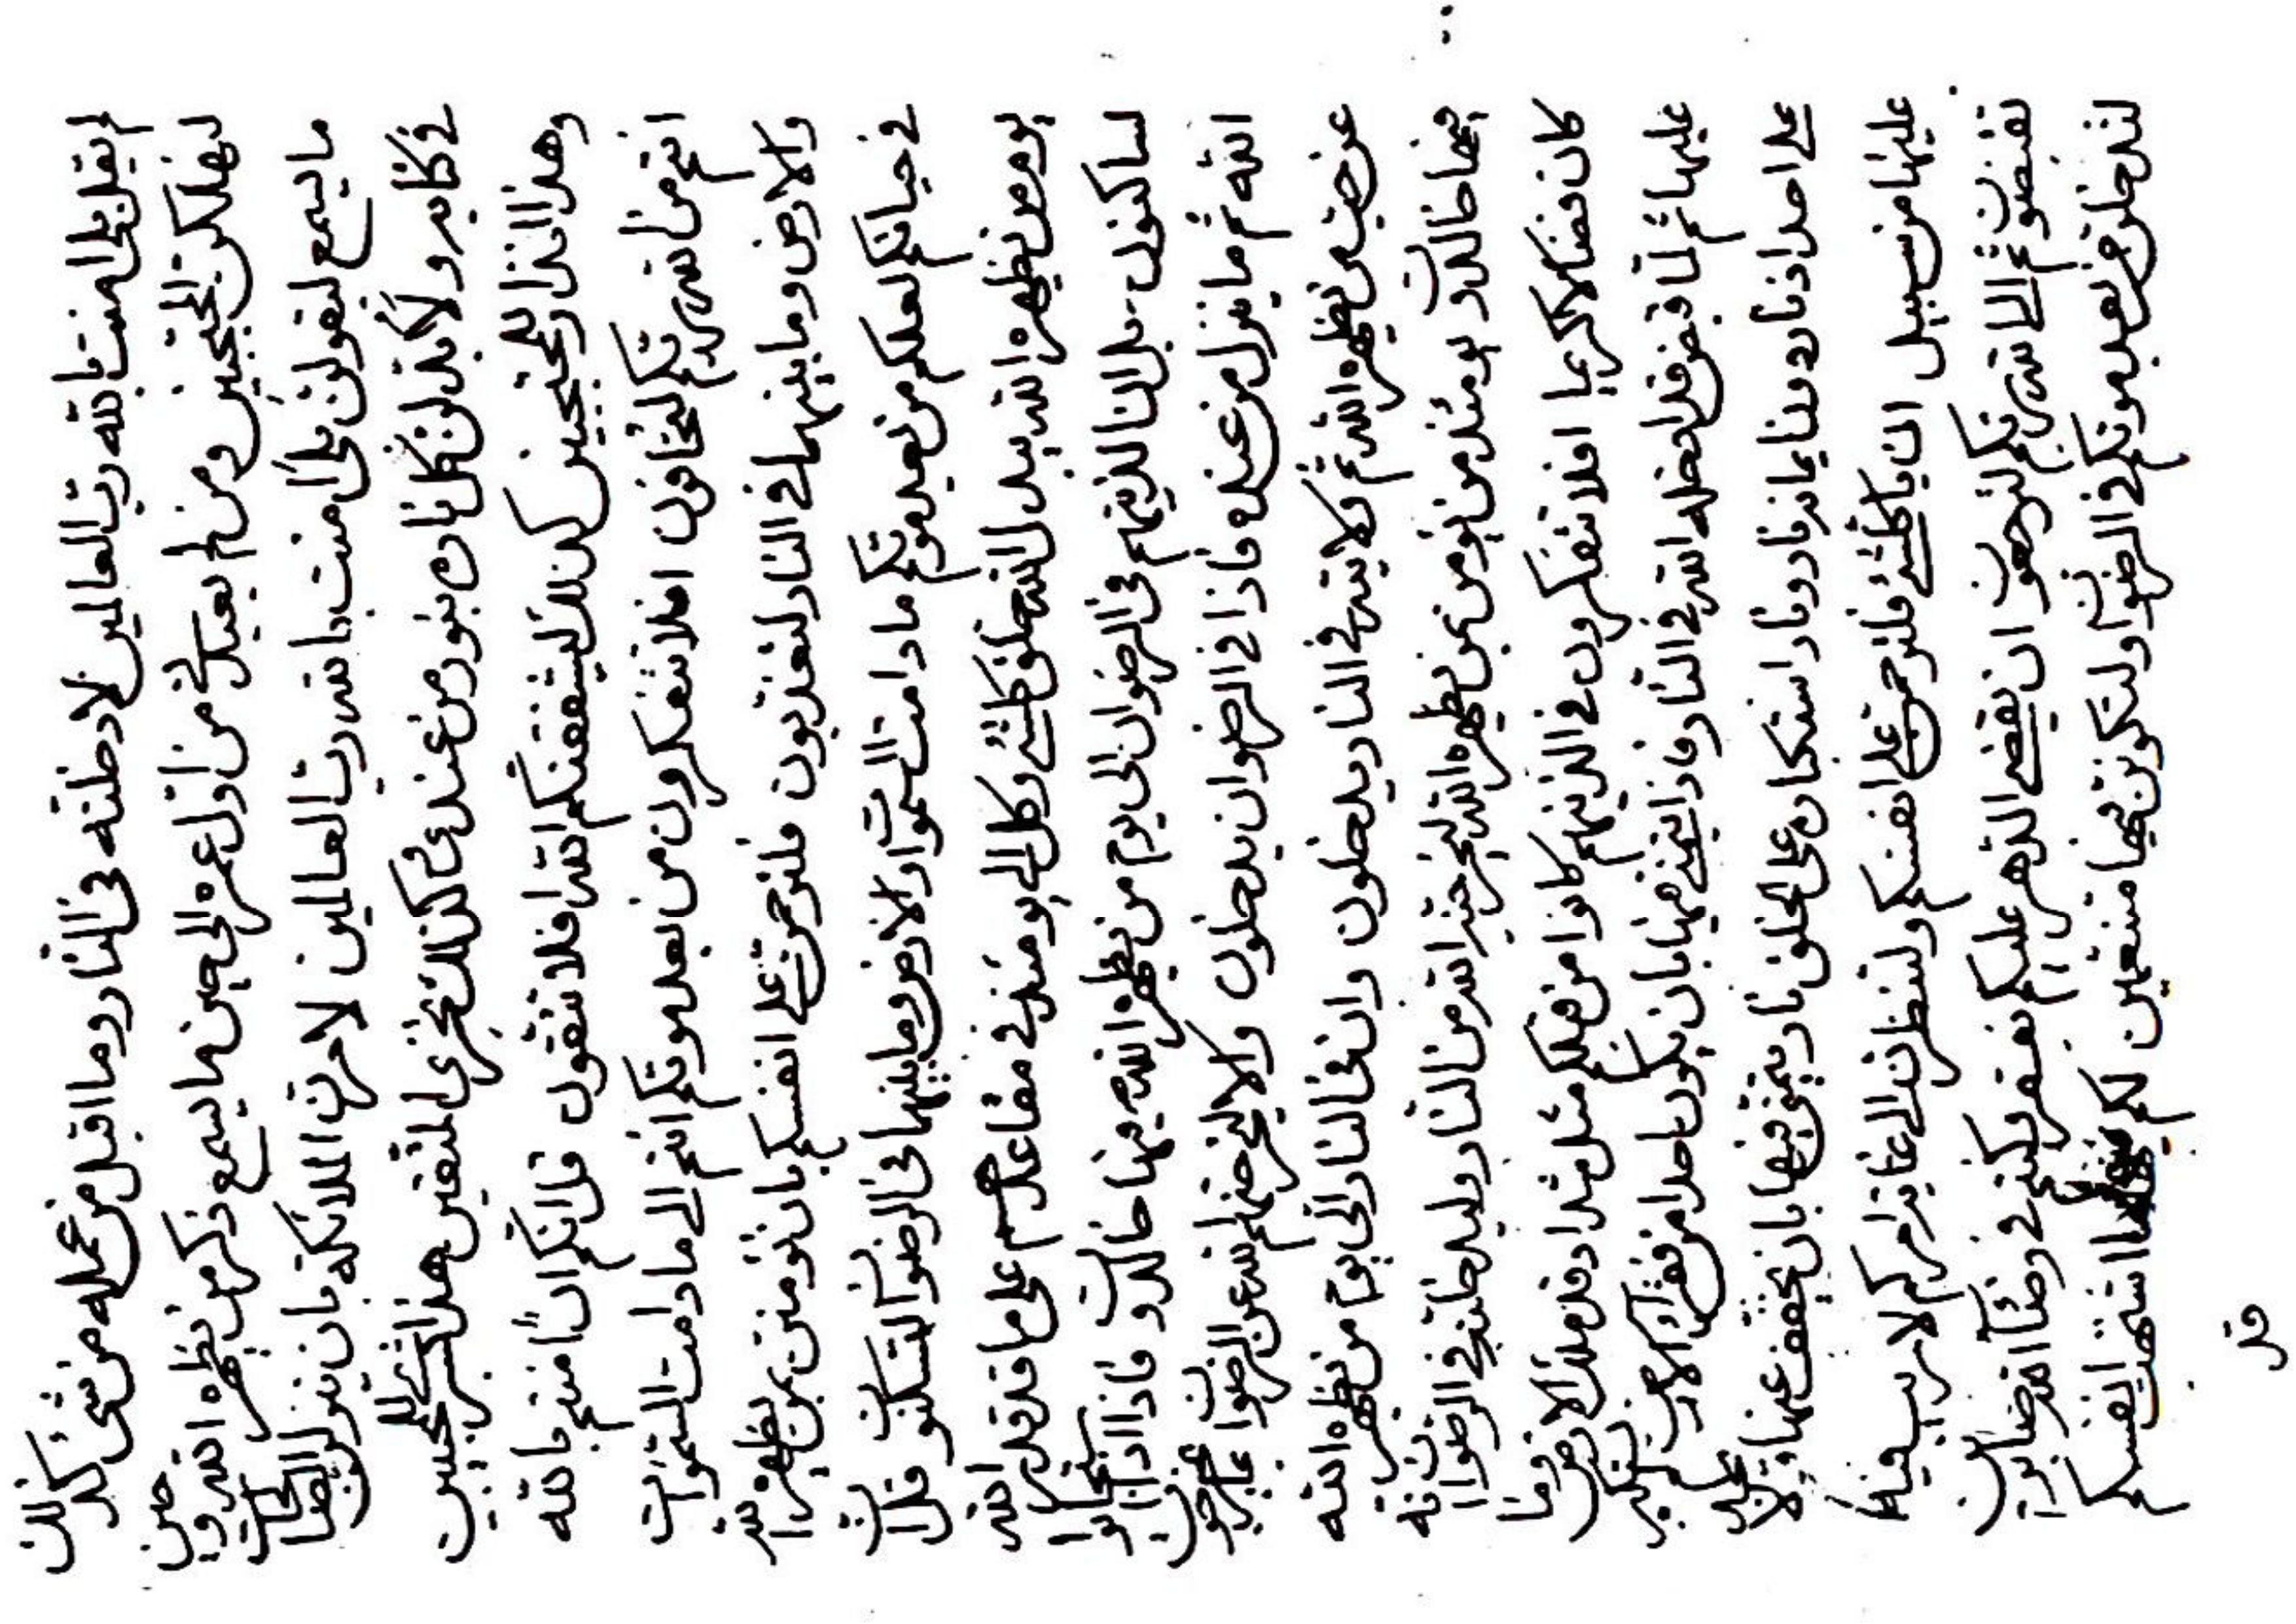 لم يقل بلى امنت بالله رب العالمين لادخلته فى النار وما اقبل من عمله من شئ كذلك
ليهلكن المحتجبين ومن لم يعبد لى من اول عمره الى حين ما يسمع ذكر من يظهره الله وحين
ما يسمع ليقولن بلى امنت بالله رب العالمين لامرن الملائكة بان ينزلن الصالحات
فى كتابه ولابدلن كل ناره بنور من عندى كذلك نجزى المتقين هذا تبشير للمحبين
وهذا انذار للمحتجبين كذلك ليشفقنكم الله افلا تتقون قل انكم ان امنتم بالله
انتم من الله ربكم لتخافون افلا تتفكرون من بعد موتكم انتم الى ما دامت السموات
والارض وما بينهما فى النار لتعذبون فلترحمن على انفسكم بان تؤمنن بمن يظهره الله
فى حياتكم لعلكم من بعد موتكم ما دامت السموات والارض وما بينهما فى الرضوان لتسكنون قل ان
يوم من يظهره الله يبدل الله خلق كلشئ وكل الى يومئذ فى مقاعدهم على ما قد قدر الله
لساكنون بل ان الذينهم فى الرضوان الى يوم من يظهره الله فيها خالدون فاذا اذا استجابوا
الله ثم ما ينزل من عنده فاذا فى الرضوان يدخلون والا ليخرجنهم الله عن الرضوان بما احتجبوا
عن من يظهره الله ثم لاياته فى النار يدخلون وان فى النار الى يوم من يظهره الله
فيها خالدون يومئذ من يؤمن بمن يظهره الله ليخرجنه الله من النار وليدخلنه فى الرضوان انه
كان فضالا كريما افلا تتفكرون فى الذينهم كانوا من قبلكم مثل شداد قد ملك الارض وما
عليها ثم لما قبض قد ادخله الله فى النار فاذا يتمنى فيها بان يكون احدا من فقراء الارض لم يتكبر
على احد اذ ناره دونا بما نز ناد ونار استكباره على الخلق نار يتمنى فيها بان يخفف عنها ولا
عليها من سبيل ان يا كلشئ فلترحمن على انفسكم ولتنظرن الى غاية امركم لا ريب فيه
تقبضون ثم الى الله ربكم لترجعون ان يقضى الدهر عليكم بفقر ولكن فى رضاء الله صابرين
لتدخلن من بعد موتكم فى الرضوان ولتكونن فيها متنعمين لكم فيها ما اشتهت انفسكم
قل